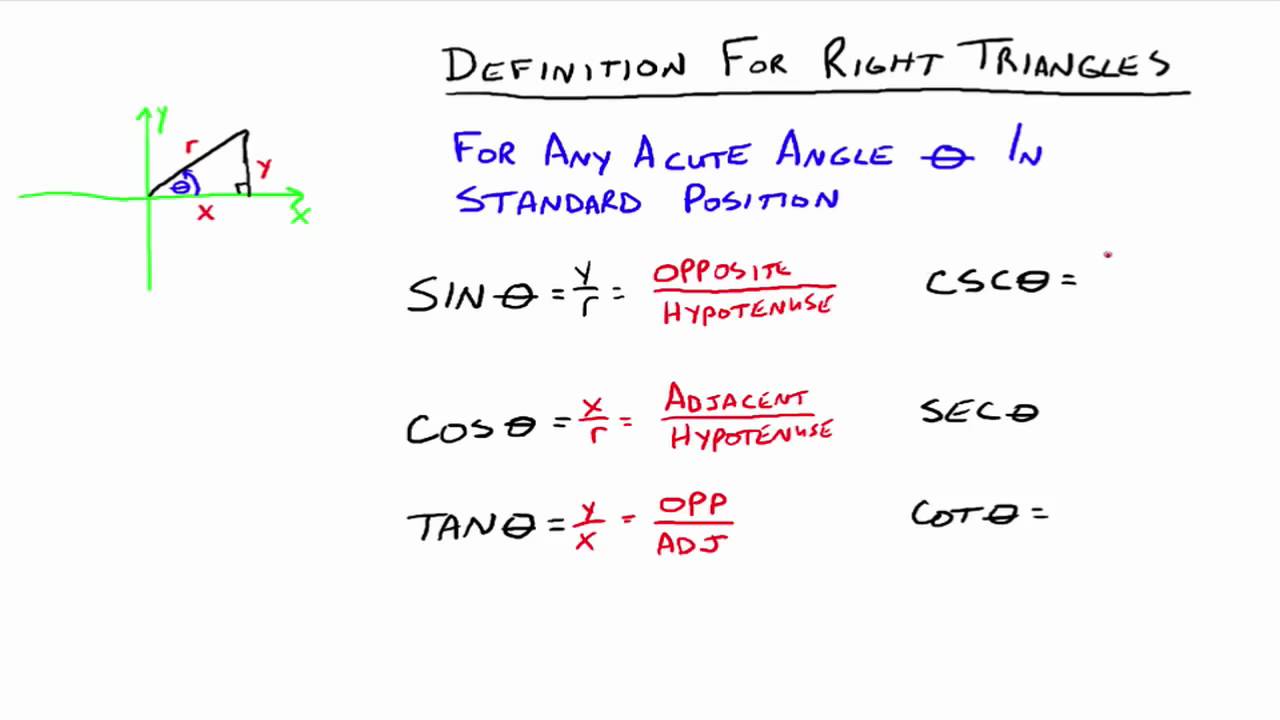 DEFINITION FOR RIGHT TRIANGLES
FOR ANY ACUTE ANGLE θ IN
STANDARD POSITION
Y
r
Y
θ
X
X
SIN θ = Y/r = OPPOSITE/HYPOTENUSE
CSC θ =
COS θ = X/r = ADJACENT/HYPOTENUSE
SEC θ
TAN θ = Y/X = OPP/ADJ
COT θ =